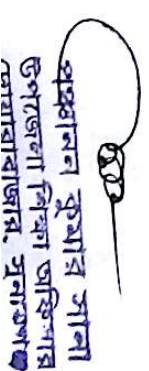 পঞ্চানন কুমার সানা
উপজেলা শিক্ষা অফিসার
দোয়ারাবাজার, সুনামগঞ্জ